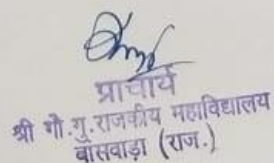 प्राचार्य
श्री गौ.गु.राजकीय महाविद्यालय
बांसवाड़ा (राज.)